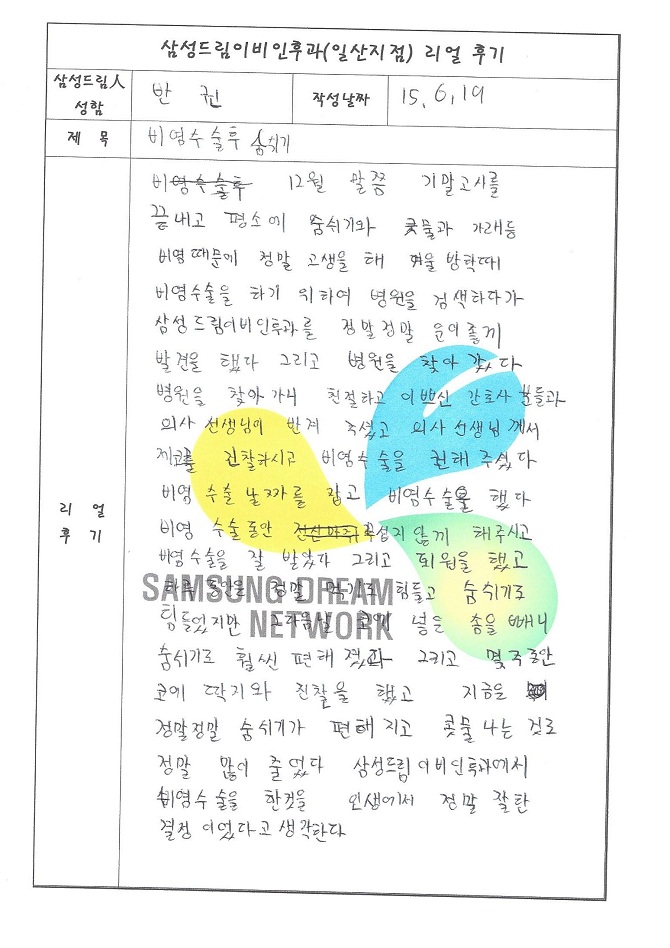 삼성드림이비인후과(일산지점) 리얼 후기
삼성드림人 성함
반 권
작성날짜
15.6.19
제 목
비염수술후 숨쉬기
리 얼
후 기
비염수술후 12월 말쯤 기말고사를
끝내고 평소에 숨쉬기와 콧물과 가래등
비염때문에 정말 고생을 해 겨울 방학때
비염수술을 하기 위하여 병원을 검색하다가
삼성드림이비인후과를 정말정말 운이좋게
발견을 했다 그리고 병원을 찾아 갔다
병원을 찾아가니 친절하고 이쁘신 간호사 분들과
의사 선생님이 반겨 주셨고 의사 선생님께서
진찰하시고 비염수술을 권해 주셨다
비염 수술 날짜를 잡고 비염수술을 했다
비염 수술동안 무섭지 않게 해주시고
비염수술을 잘 받았다 그리고 퇴원을 했고
하루 동안은 정말 먹기도 힘들고 숨쉬기도
SAMSUNG DREAM
NETWORK
힘들었지만 그다음날 코에 넣은 솜을 빼니
숨쉬기도 훨씬 편해졌다 그리고 몇주동안
코에 딱기와 진찰을 했고 지금은
정말정말 숨쉬기가 편해지고 콧물 나는 것도
정말 많이 줄었다 삼성드림이비인후과에서
비염수술을 한것을 인생에서 정말 잘한
결정 이었다고 생각한다